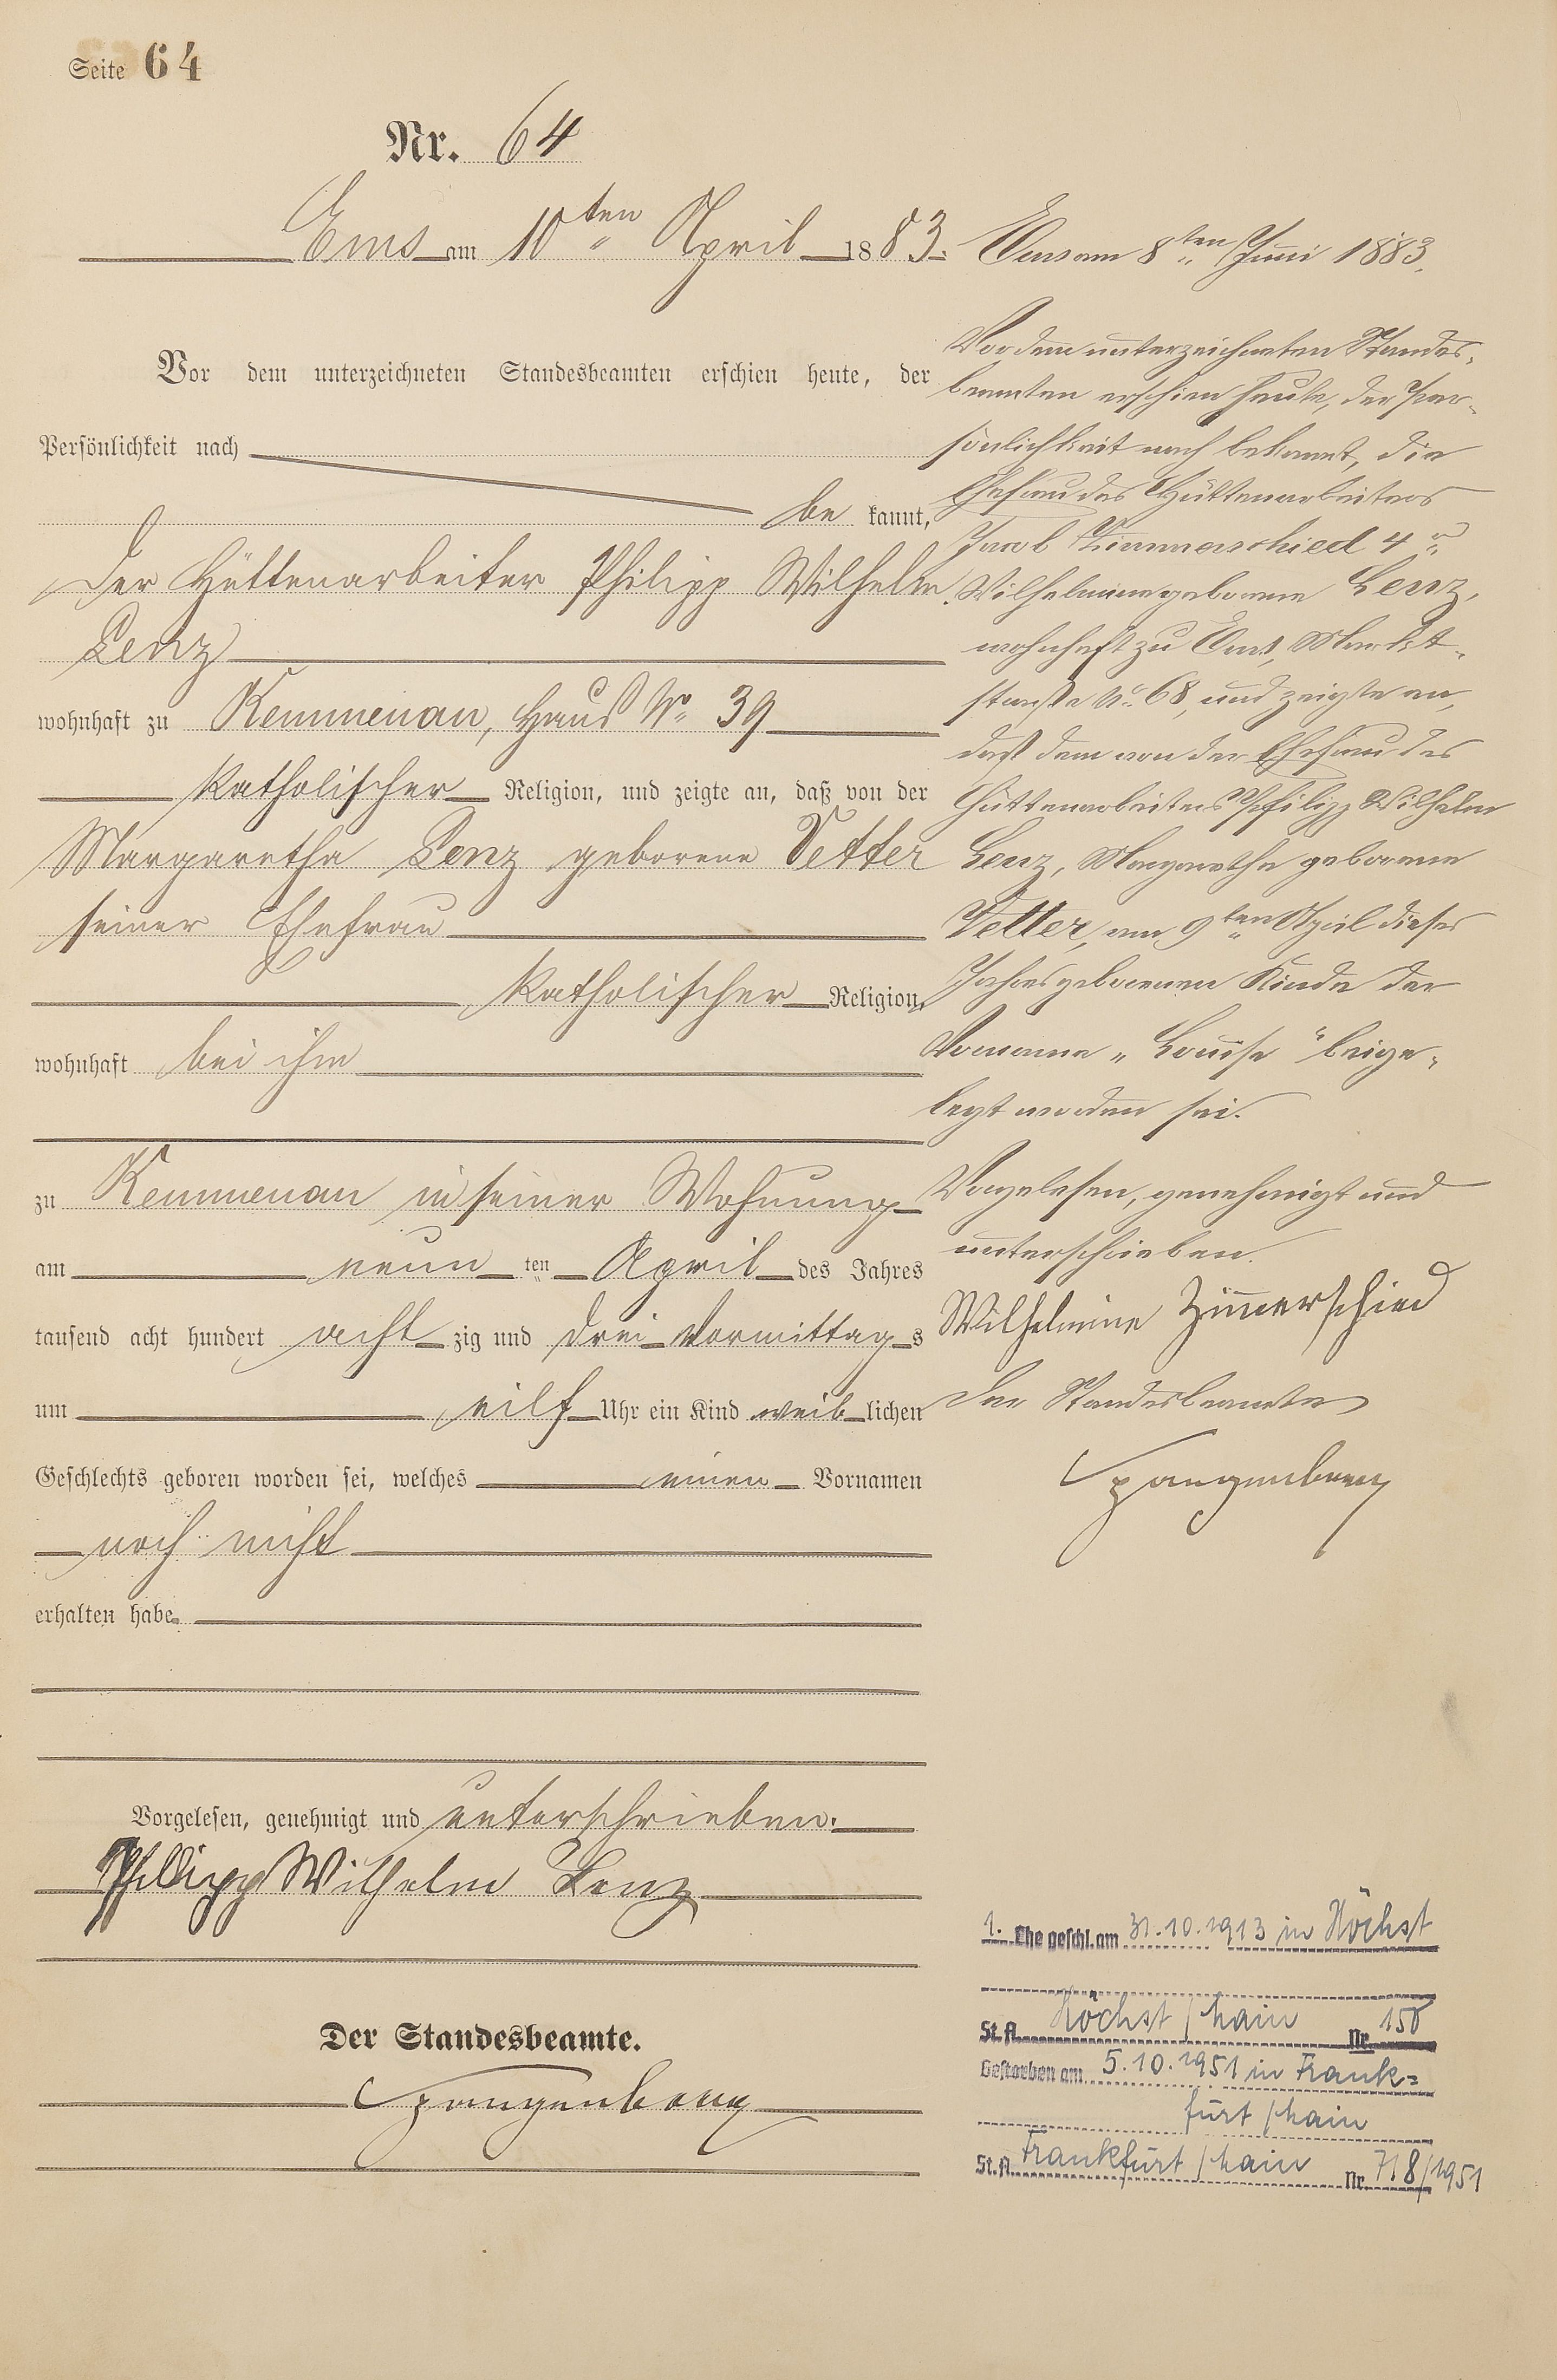 Seite 64
Nr. 64
Ems am 10ten April 1883.
Vor dem unterzeichneten Standesbeamten erschien heute, der
Persönlichkeit nach
be kannt,
der Hüttenarbeiter Philipp Wilhelm
Lenz
wohnhaft zu Kemmenau, Haus No 39
katholischer Religion, und zeigte an, daß von der
Margaretha Lenz geborene Vetter
seiner Ehefrau
katholischer Religion,
wohnhaft bei ihm
zu Kemmenau in seiner Wohnung
am neun ten April des Jahres
tausend acht hundert acht zig und drei Vormittag s
um eilf Uhr ein Kind weib lichen
Geschlechts geboren worden sei, welches einen Vornamen
noch nicht
erhalten habe.
Vorgelesen, genehmigt und unterschrieben.
Philipp Wilhelm Lenz
Der Standesbeamte.
Spangenberg
Ems am 8ten Juni 1883.
Vor dem unterzeichneten Standes-
beamten erschien heute, der Per-
sönlichkeit nach bekannt, die
Ehefrau des Hüttenarbeiters
Jacob Zimmerschied 4r
Wilhelmine geborene Lenz,
wohnhaft zu Ems, Markt-
straße No 68, und zeigte an,
daß dem von der Ehefrau des
Hüttenarbeiters Philipp Wilhelm
Lenz, Margarethe geborene
Vetter, am 9ten April dieses
Jahres geborenen Kinde der
Vorname „Louise" beige-
legt worden sei.
Vorgelesen, genehmigt und
unterschrieben.
Wilhelmine Zimmerschied
Der Standesbeamte
Spangenberg
1. Ehe geschl. am 31.10.1913 in Höchst
St.A. Höchst/Main Nr. 150
Gestorben am 5.10.1951 in Frank=
furt/Main
St.A. Frankfurt/Main Nr. 718/1951